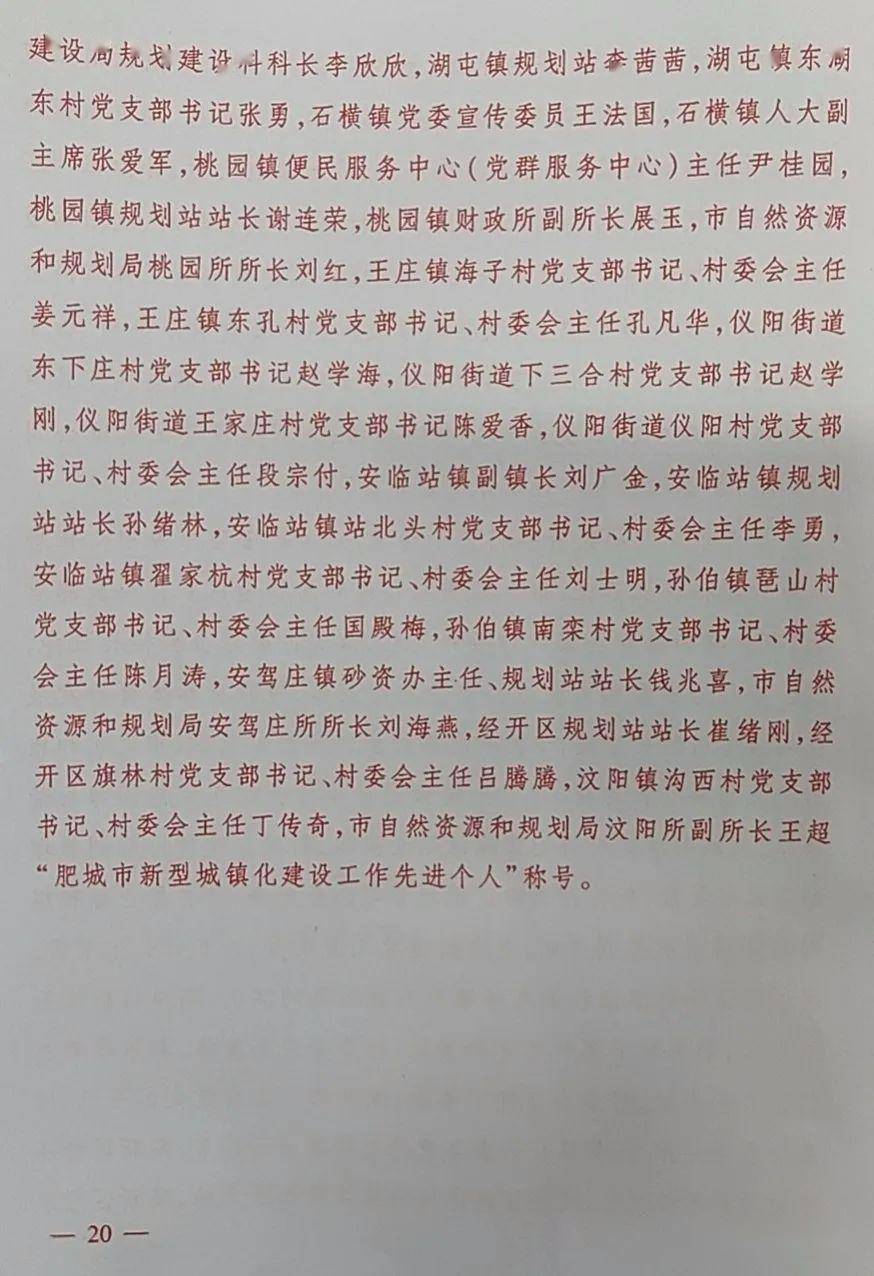 建设局规划建设科科长李欣欣，湖屯镇规划站李茜茜，湖屯镇东湖
东村党支部书记张勇，石横镇党委宣传委员王法国，石横镇人大副
主席张爱军，桃园镇便民服务中心（党群服务中心）主任尹桂园，
桃园镇规划站站长谢连荣，桃园镇财政所副所长展玉，市自然资源
和规划局桃园所所长刘红，王庄镇海子村党支部书记、村委会主任
姜元祥，王庄镇东孔村党支部书记、村委会主任孔凡华，仪阳街道
东下庄村党支部书记赵学海，仪阳街道下三合村党支部书记赵学
刚，仪阳街道王家庄村党支部书记陈爱香，仪阳街道仪阳村党支部
书记、村委会主任段宗付，安临站镇副镇长刘广金，安临站镇规划
站站长孙绪林，安临站镇站北头村党支部书记、村委会主任李勇，
安临站镇翟家杭村党支部书记、村委会主任刘士明，孙伯镇琶山村
党支部书记、村委会主任国殿梅，孙伯镇南栾村党支部书记、村委
会主任陈月涛，安驾庄镇砂资办主任、规划站站长钱兆喜，市自然
资源和规划局安驾庄所所长刘海燕，经开区规划站站长崔绪刚，经
开区旗林村党支部书记、村委会主任吕腾腾，汶阳镇沟西村党支部
书记、村委会主任丁传奇，市自然资源和规划局汶阳所副所长王超
“肥城市新型城镇化建设工作先进个人”称号。
— 20 —